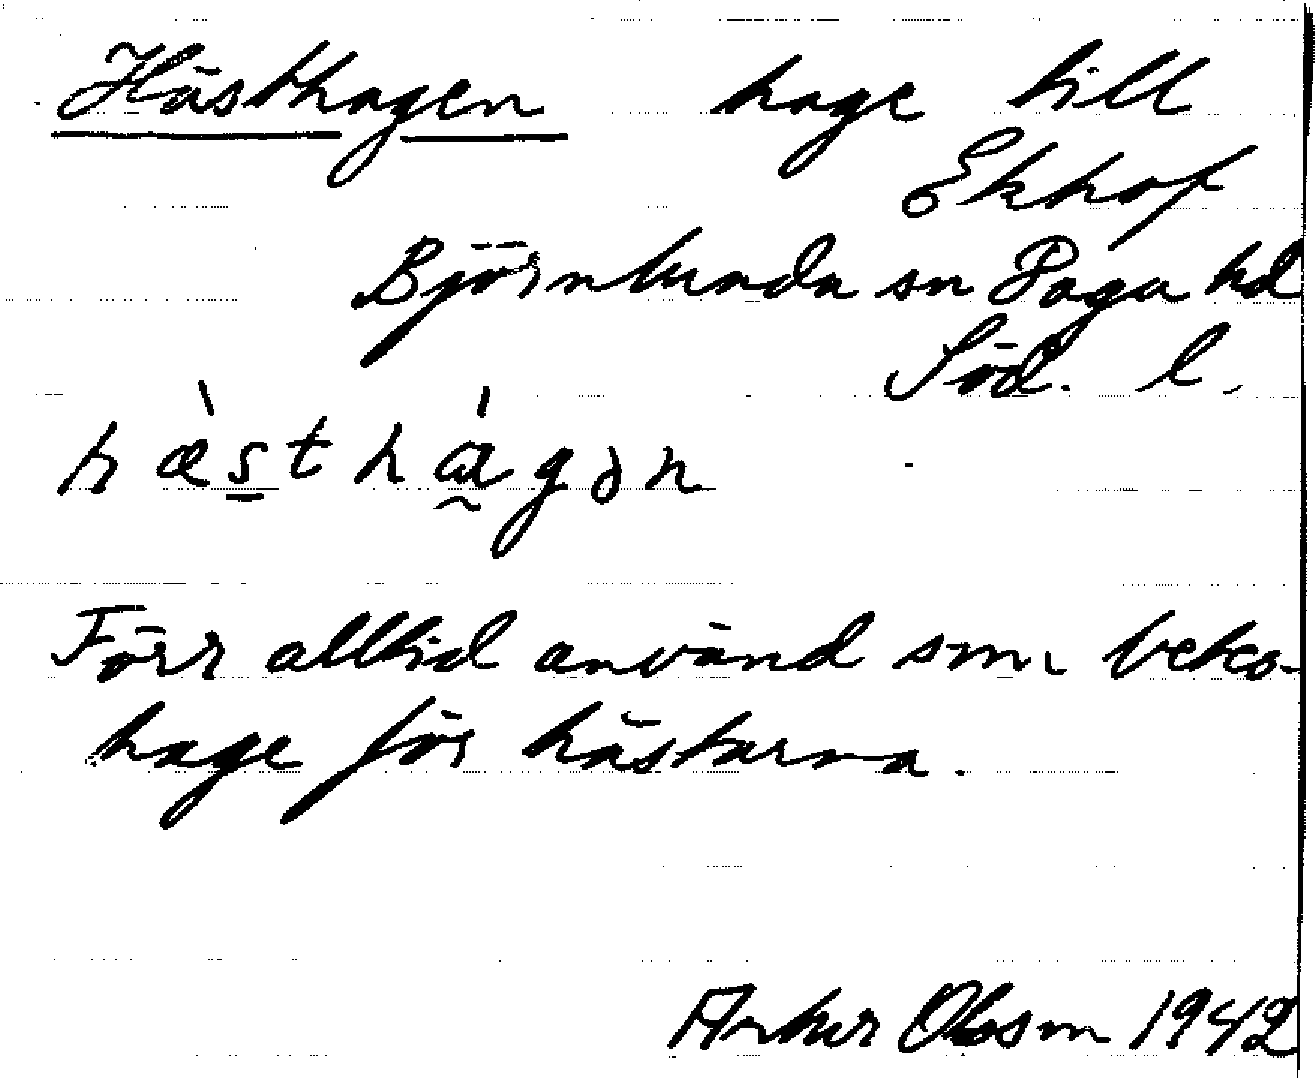 Hästhagen hage till
Ekhof
Björnlunda sn Daga hd
Söd. l.
hæ̀sthɑ́gən
Förr alltid använd som betes-
hage för hästarna.
Arthur Olsson 1942